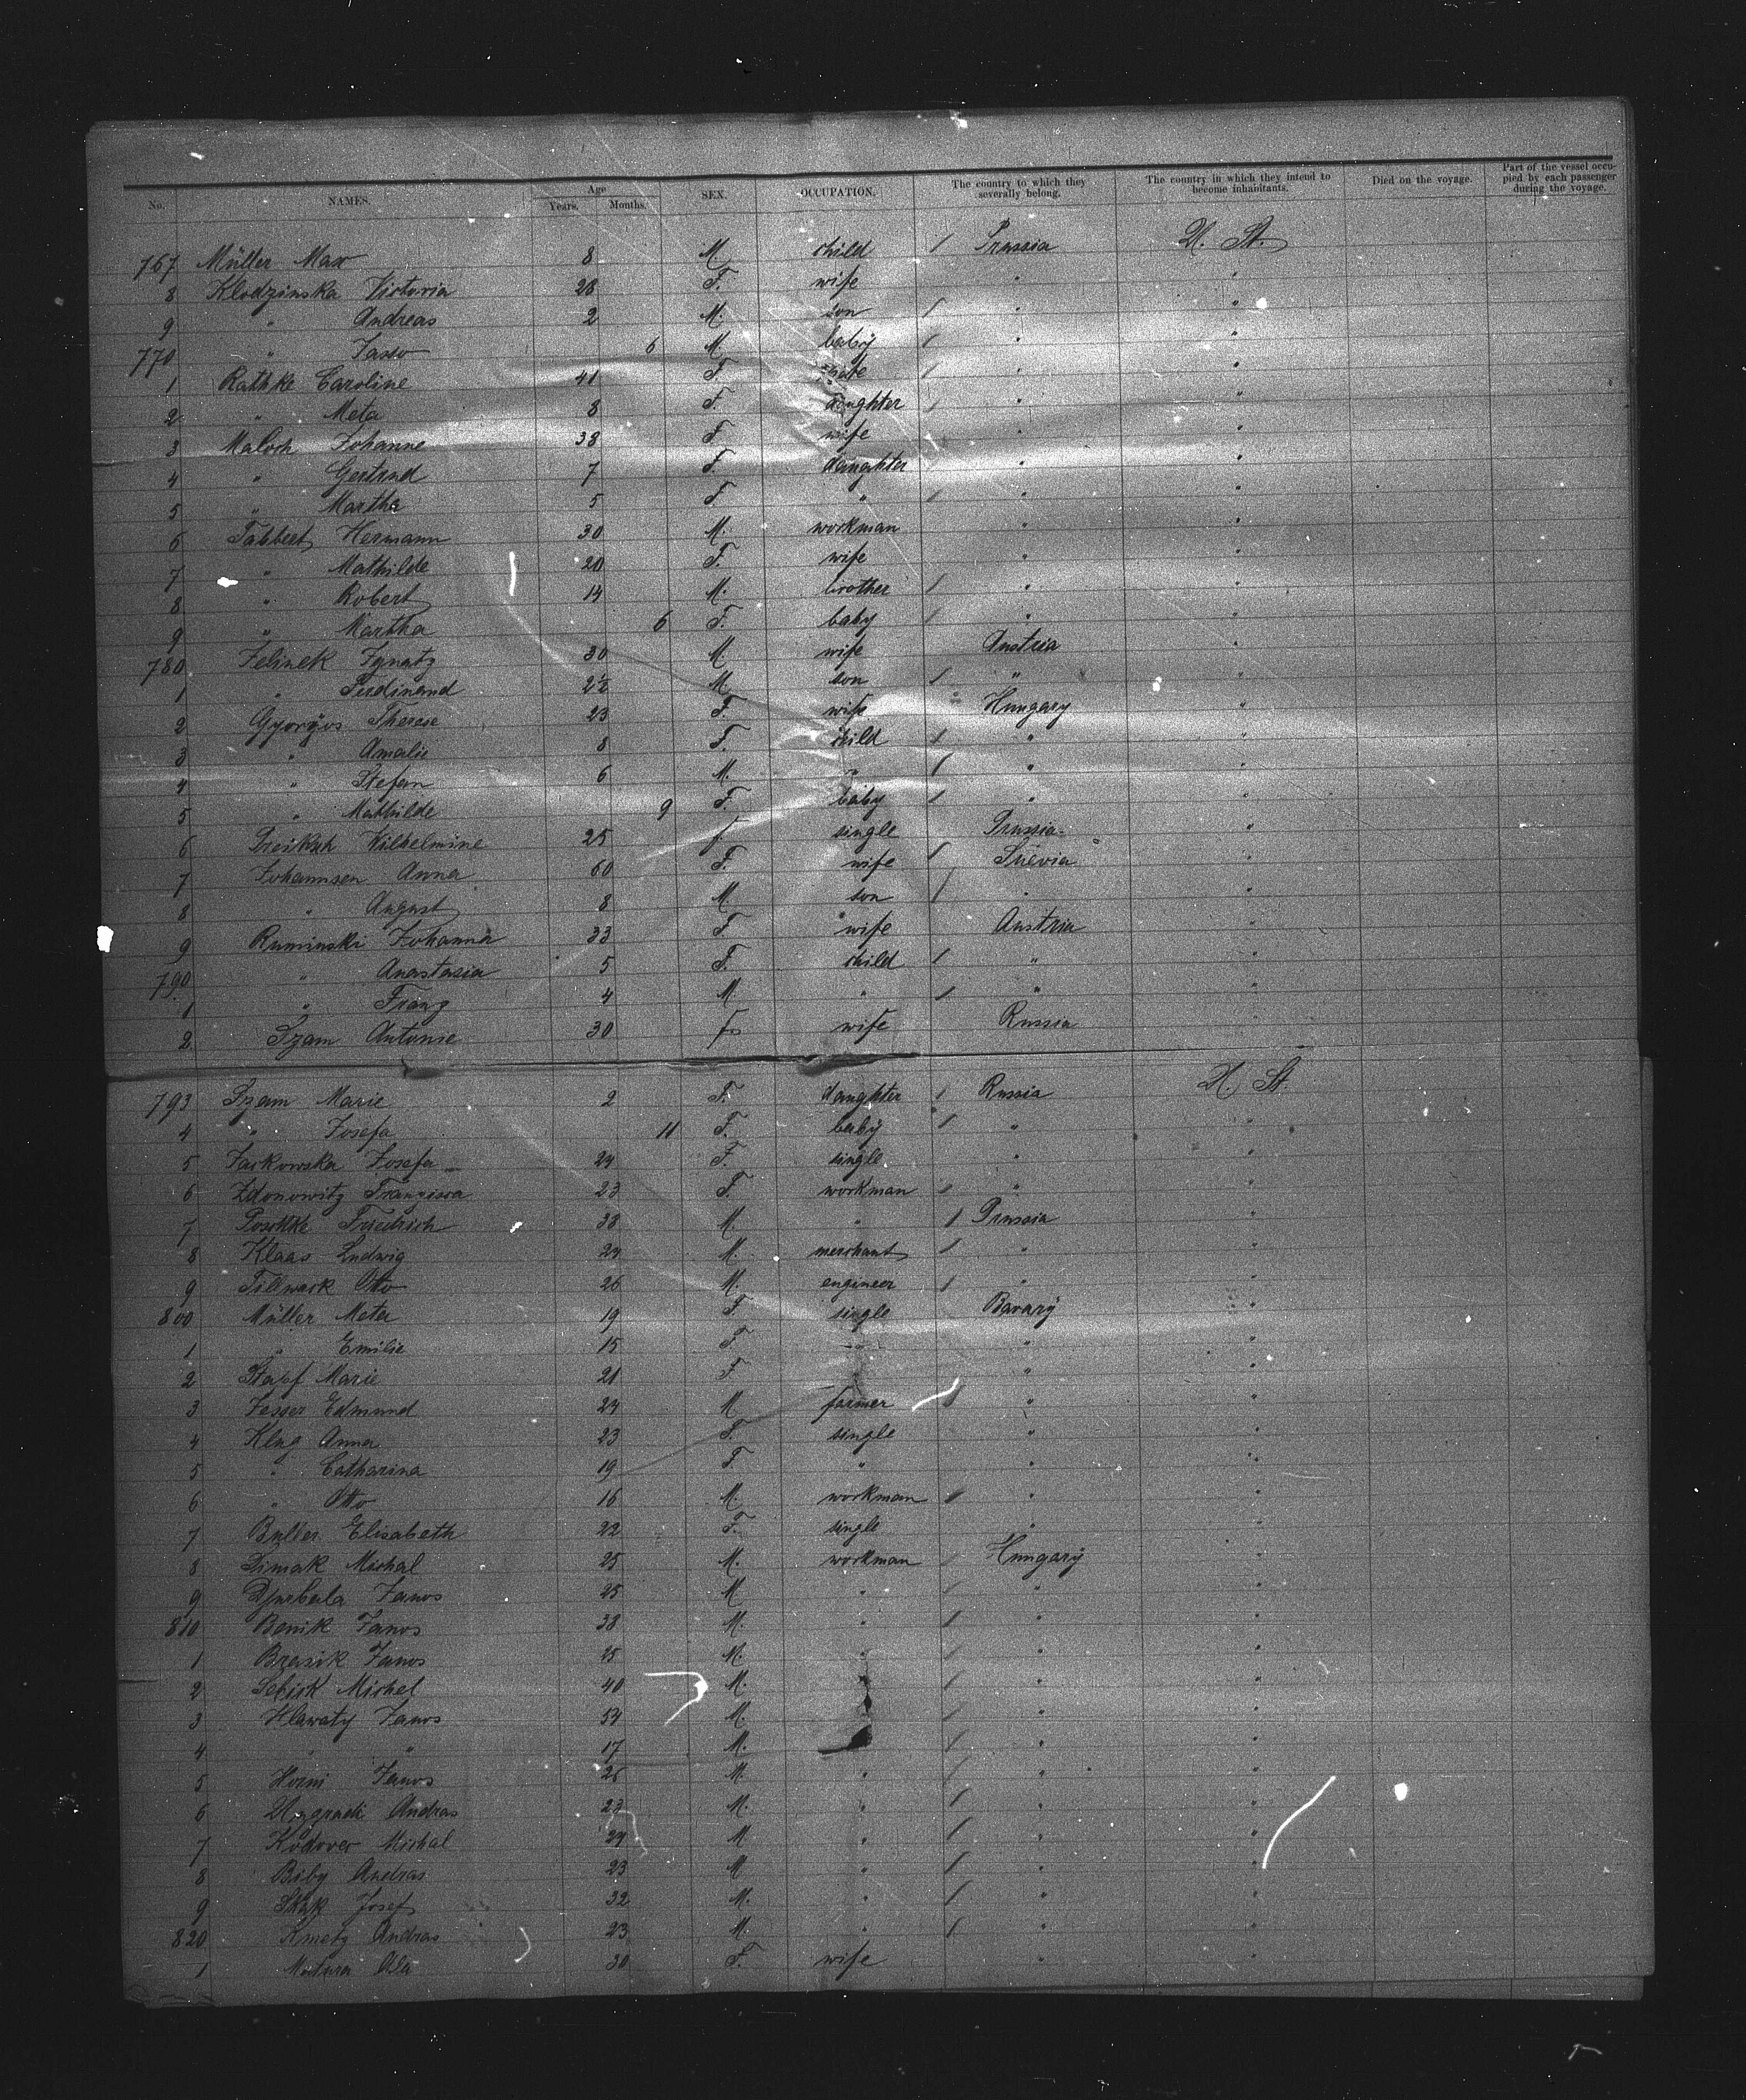 No. NAMES. Age Years. Months. SEX. OCCUPATION. The country to which they severally belong. The country in which they intend to become inhabitants. Died on the voyage. Part of the vessel occupied by each passenger during the voyage.
767 Müller Max 8 M. child / Prussia U. St.
8 Klodzinska Victoria 28 F. wife " "
9 " Andreas 2 M. son / " "
770 " 6 M. baby / " "
1 Rathke Caroline 41 F. / " "
2 " Meta 8 F. daughter / " "
3 Maloch Johanne 38 F wife " "
4 " Gertrud 7 F. daughter " "
5 " Martha 5 F " / " "
6 Tabbert Hermann 30 M. workman " "
7 " Mathilde 20 F. wife " "
8 " Robert 14 M. brother / " "
9 " Martha 6 F. baby / " "
780 Jelinek Ignatz 30 M. wife Austria "
1 " Ferdinand 2½ M son / " "
2 Gyorgos Therese 23 F. wife Hungary "
3 " Amalie 8 F. child / " "
4 " Stefan 6 M. " / " "
5 " Mathilde 9 F. baby / " "
6 Wilhelmine 25 f. single Prussia "
7 Johannsen Anna 60 F. wife / Suevia "
8 " August 8 M son / " "
9 Ruminski Johanna 33 F. wife Austria "
790 " Anastasia 5 F. child / " "
1 " Franz 4 M " / " "
2 Szam Antonie 30 f wife Russia
793 Szam Marie 2 F. daughter / Russia U. St.
4 " Josefa 11 F. baby / " "
5 Jackowska Josefa 24 F. single " "
6 Zdonowitz Franzisca 23 F. workman / " "
7 Friedrich 38 M. " / Prussia "
8 Klaas Ludwig 24 M. merchant / " "
9 Tillwark Otto 26 M. engineer / " "
800 Müller Meta 19 F single Bavary "
1 " Emilie 15 F " " "
2 Marie 21 F " "
3 Jesser Edmund 24 M farmer / " "
4 Klug Anna 23 F. single " "
5 " Catharina 19 F " " "
6 " Otto 16 M. workman / " "
7 Buller Elisabeth 22 F. single " "
8 Simak Michal 25 M. workman / Hungary "
9 Janos 25 M " / " "
810 Benik Janos 38 M. " / " "
1 Brasik Janos 25 M. " / " "
2 Michel 40 M. " / " "
3 Hlawaty Janos 54 M. / " "
4 " " 17 M. / " "
5 Horni Janos 26 M. " / " "
6 Andras 23 M. " / " "
7 Kodover Michal 24 M " / " "
8 Biby Andras 23 M " / " "
9 Josef 32 M. " / " "
820 Kmetz Andras 23 M. " / " "
1 Matura 30 F. wife " "